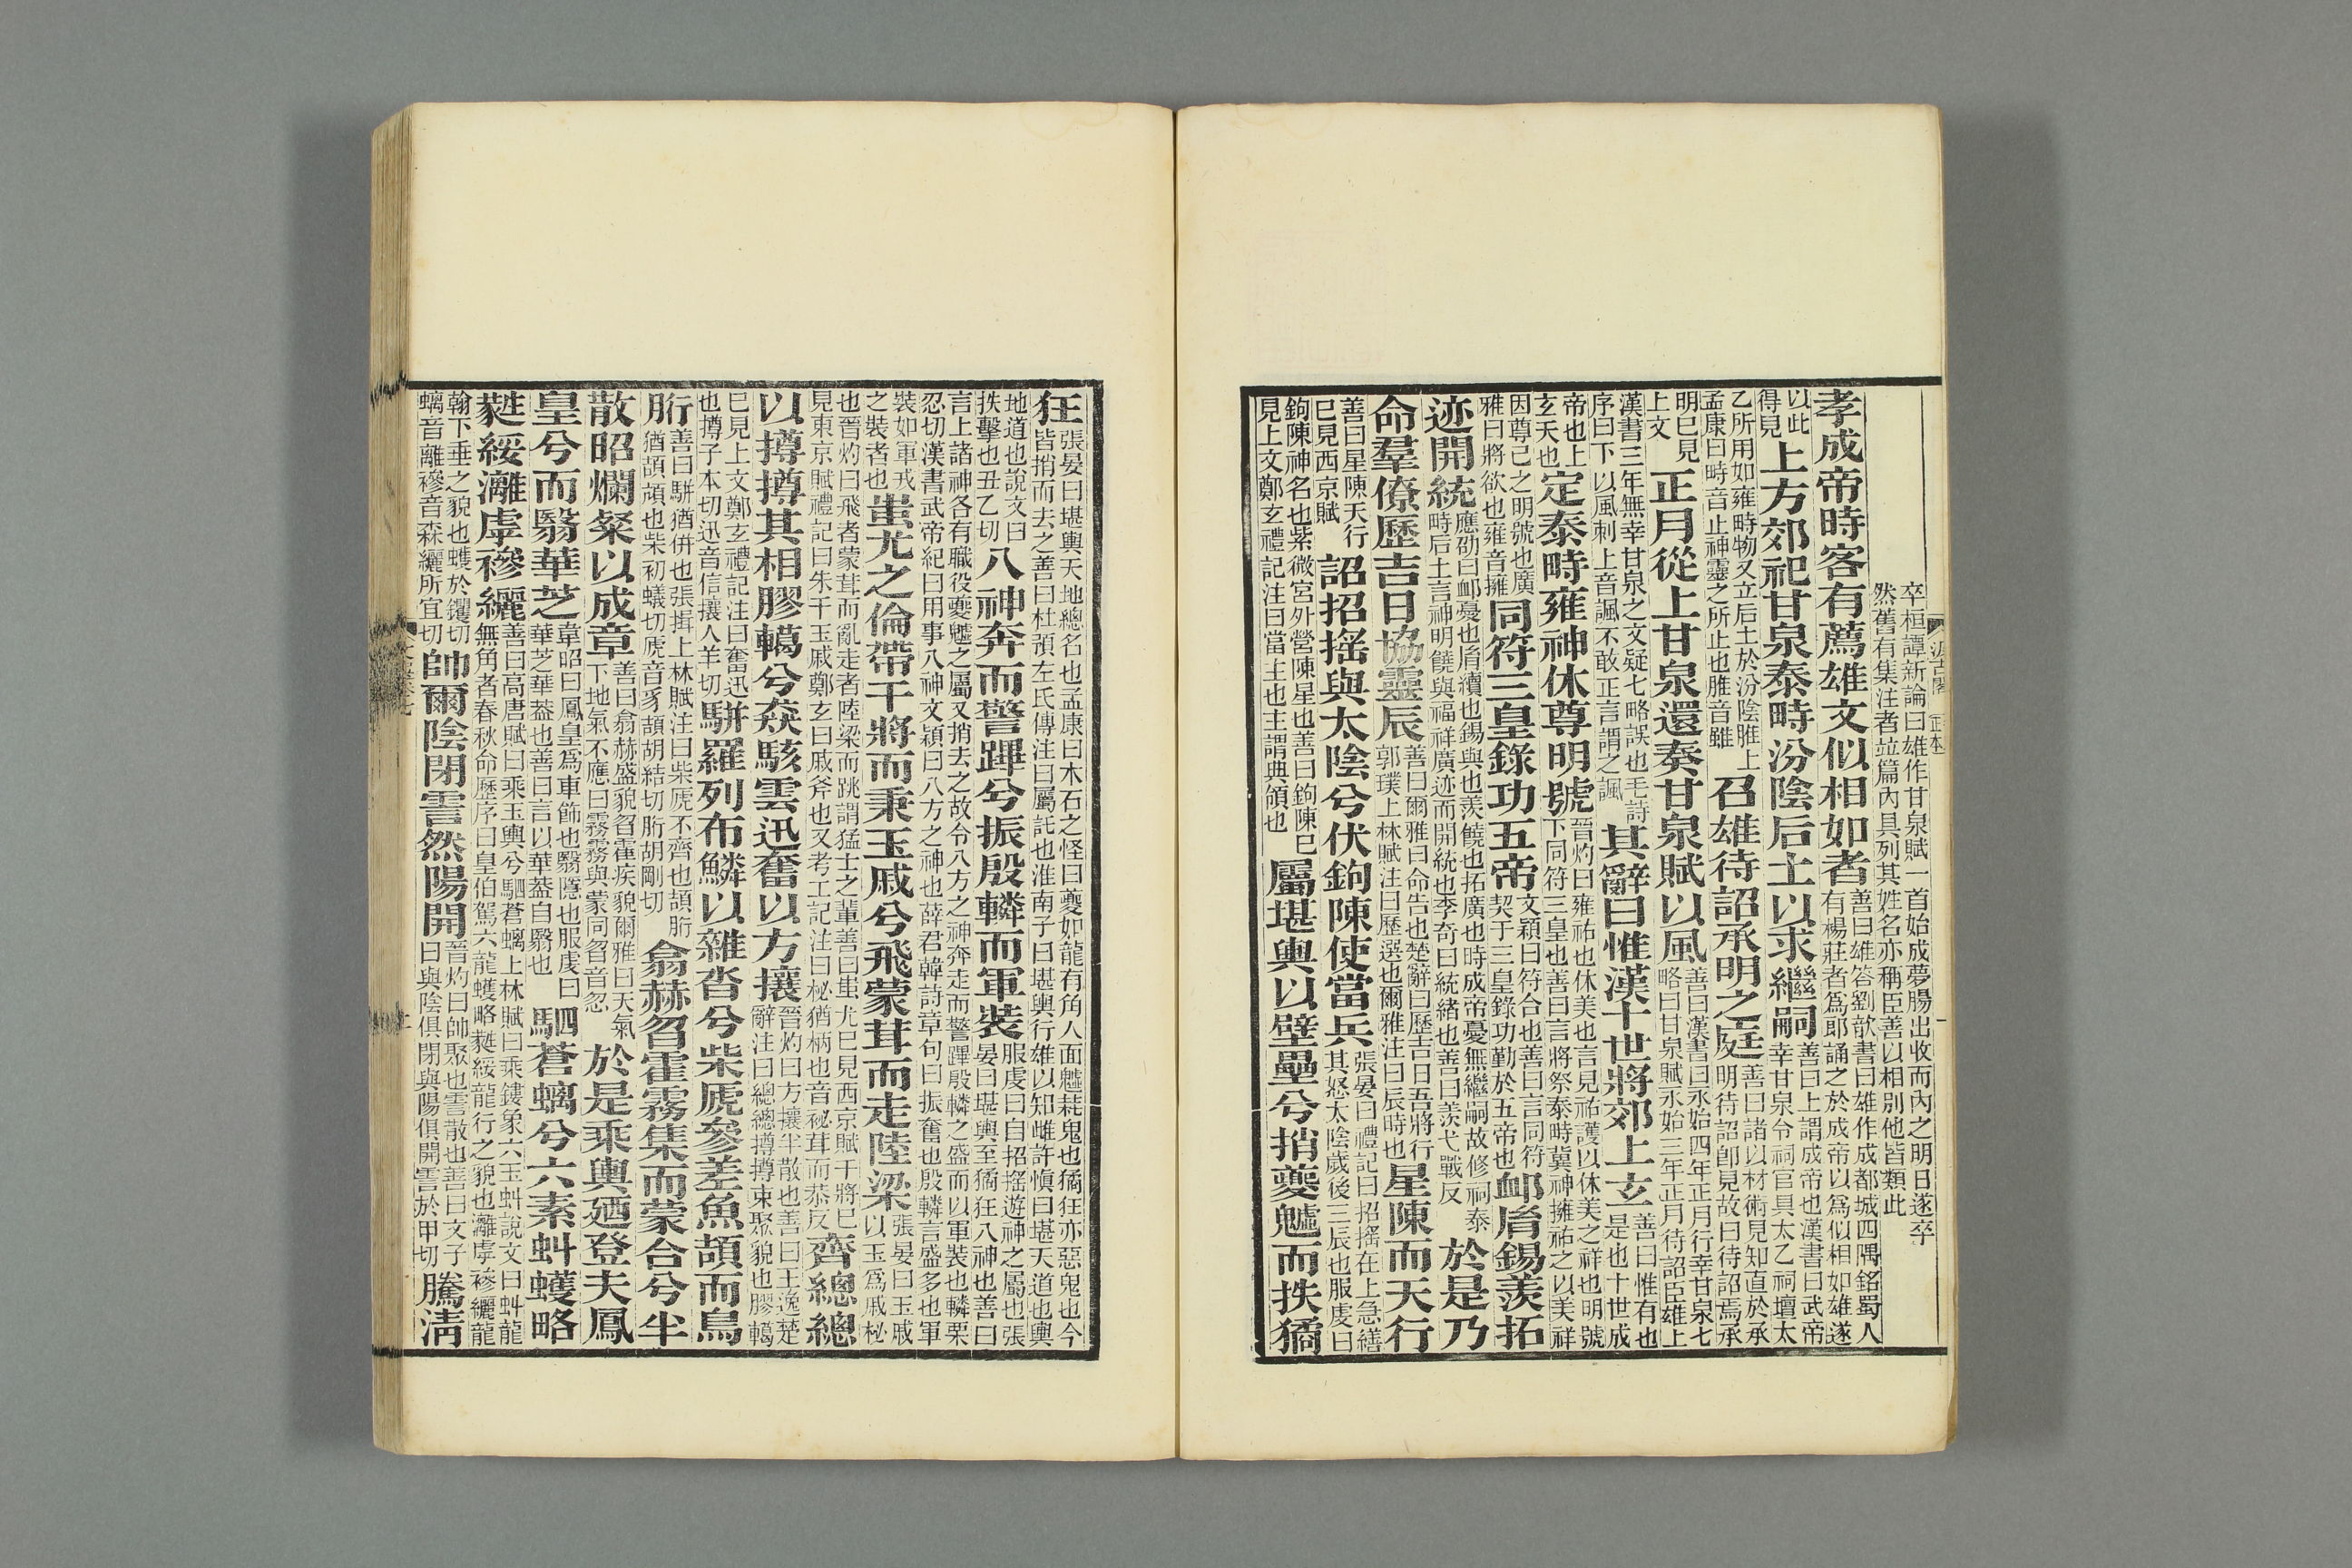 卒桓譚新論曰雄作甘泉賦一首始成夢腸出收而內之明日遂卒
然舊有集注者竝篇內具列其姓名亦稱臣善以相別他皆類此
孝成帝時客有薦雄文似相如者善曰雄答劉歆書曰雄作成都城四隅銘蜀人有楊莊者爲郎誦之於成帝以爲似相如雄遂
以此得見上方郊祀甘泉泰畤汾陰后土以求繼嗣善曰上謂成帝也漢書曰武帝幸甘泉令祠官具太乙祠壇太
乙所用如雍畤物又立后土於汾陰脽上孟康曰畤音止神靈之所止也脽音雖召雄待詔承明之庭善曰諸以材術見知直於承明待詔卽見故曰待詔焉承
明已見上文正月從上甘泉還奏甘泉賦以風善曰漢書曰永始四年正月行幸甘泉七略曰甘泉賦永始三年正月待詔臣雄上
漢書三年無幸甘泉之文疑七略誤也毛詩序曰下以風刺上音諷不敢正言謂之諷其辭曰惟漢十世將郊上玄善曰惟有也是也十世成
帝也上玄天也定泰畤雍神休尊明號晉灼曰雍祐也休美也言見祐護以休美之祥也明號下同符三皇也善曰言將祭泰畤冀神擁祐之以美祥
因尊己之明號也廣雅曰將欲也雍音擁同符三皇錄功五帝文穎曰符合也善曰言同符契于三皇錄功勤於五帝也卹胤錫羨拓
迹開統應劭曰卹憂也胤續也錫與也羨饒也拓廣也時成帝憂無繼嗣故修祠泰畤后土言神明饒與福祥廣迹而開統也李奇曰統緒也善曰羨弋戰反於是乃
命羣僚歷吉日協靈辰善曰爾雅曰命告也楚辭曰歷吉日吾將行郭璞上林賦注曰歷選也爾雅注曰辰時也星陳而天行
善曰星陳天行已見西京賦詔招搖與太陰兮伏鉤陳使當兵張晏曰禮記曰招搖在上急繕其怒太陰歲後三辰也服虔曰
鉤陳神名也紫微宮外營陳星也善曰鉤陳已見上文鄭玄禮記注曰當主也主謂典領也屬堪輿以壁壘兮捎夔魖而抶獝
狂張晏曰堪輿天地總名也孟康曰木石之怪曰夔如龍有角人面魖耗鬼也獝狂亦惡鬼也今皆捎而去之善曰杜預左氏傳注曰屬託也淮南子曰堪輿行雄以知雌許慎曰堪天道也輿
地道也說文曰抶擊也丑乙切八神奔而警蹕兮振殷轔而軍裝服虔曰自招搖遊神之屬也張晏曰堪輿至獝狂八神也善曰
言上諸神各有職役夔魖之屬又捎去之故令八方之神奔走而警蹕殷轔之盛而以軍裝也轔栗忍切漢書武帝紀曰用事八神文穎曰八方之神也薛君韓詩章句曰振奮也殷轔言盛多也軍
裝如軍戎之裝者也蚩尤之倫帶干將而秉玉戚兮飛蒙茸而走陸梁張晏曰玉戚以玉爲戚柲
也晉灼曰飛者蒙茸而亂走者陸梁而跳謂猛士之輩善曰蚩尤已見西京賦干將已見東京賦禮記曰朱干玉戚鄭玄曰戚斧也又考工記注曰柲猶柄也音祕茸而恭反齊總總
以撙撙其相膠轕兮猋駭雲迅奮以方攘晉灼曰方攘半散也善曰王逸楚辭注曰總總撙撙束聚貌也膠轕
已見上文鄭玄禮記注曰奮迅也撙子本切迅音信攘人羊切駢羅列布鱗以雜沓兮柴虒參差魚頡而鳥
䀪善曰駢猶併也張揖上林賦注曰柴虒不齊也頡䀪猶頡頏也柴初蟻切虒音豸頡胡結切䀪胡剛切翕赫曶霍霧集而蒙合兮半
散昭爛粲以成章善曰翕赫盛貌曶霍疾貌爾雅曰天氣下地氣不應曰霧霧與蒙同曶音忽於是乘輿廼登夫鳳
皇兮而翳華芝韋昭曰鳳皇爲車飾也翳隱也服虔曰華芝華葢也善曰言以華葢自翳也駟蒼螭兮六素虯蠖略
蕤綏灕虖襂纚善曰高唐賦曰乘玉輿兮駟蒼螭上林賦曰乘鏤象六玉虯說文曰虯龍無角者春秋命歷序曰皇伯駕六龍蠖略蕤綏龍行之貌也灕虖襂纚龍
翰下垂之貌也蠖於鑊切螭音離襂音森纚所宜切帥爾陰閉霅然陽開晉灼曰帥聚也霅散也善曰文子曰與陰俱閉與陽俱開霅於甲切騰淸
汲古閣